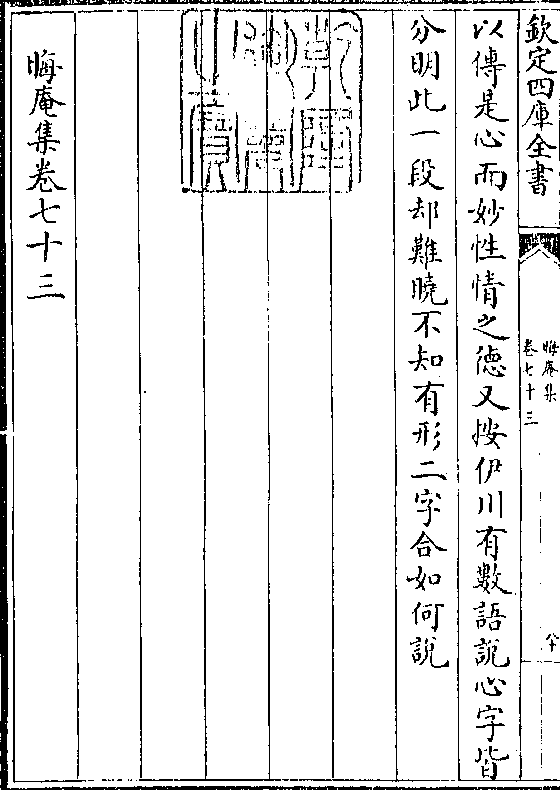 欽定四庫全書
晦庵集
卷七十三
八十
以傳是心而妙性情之德又按伊川有數語說心字皆
分明此一段却難曉不知有形二字合如何說
晦庵集卷七十三